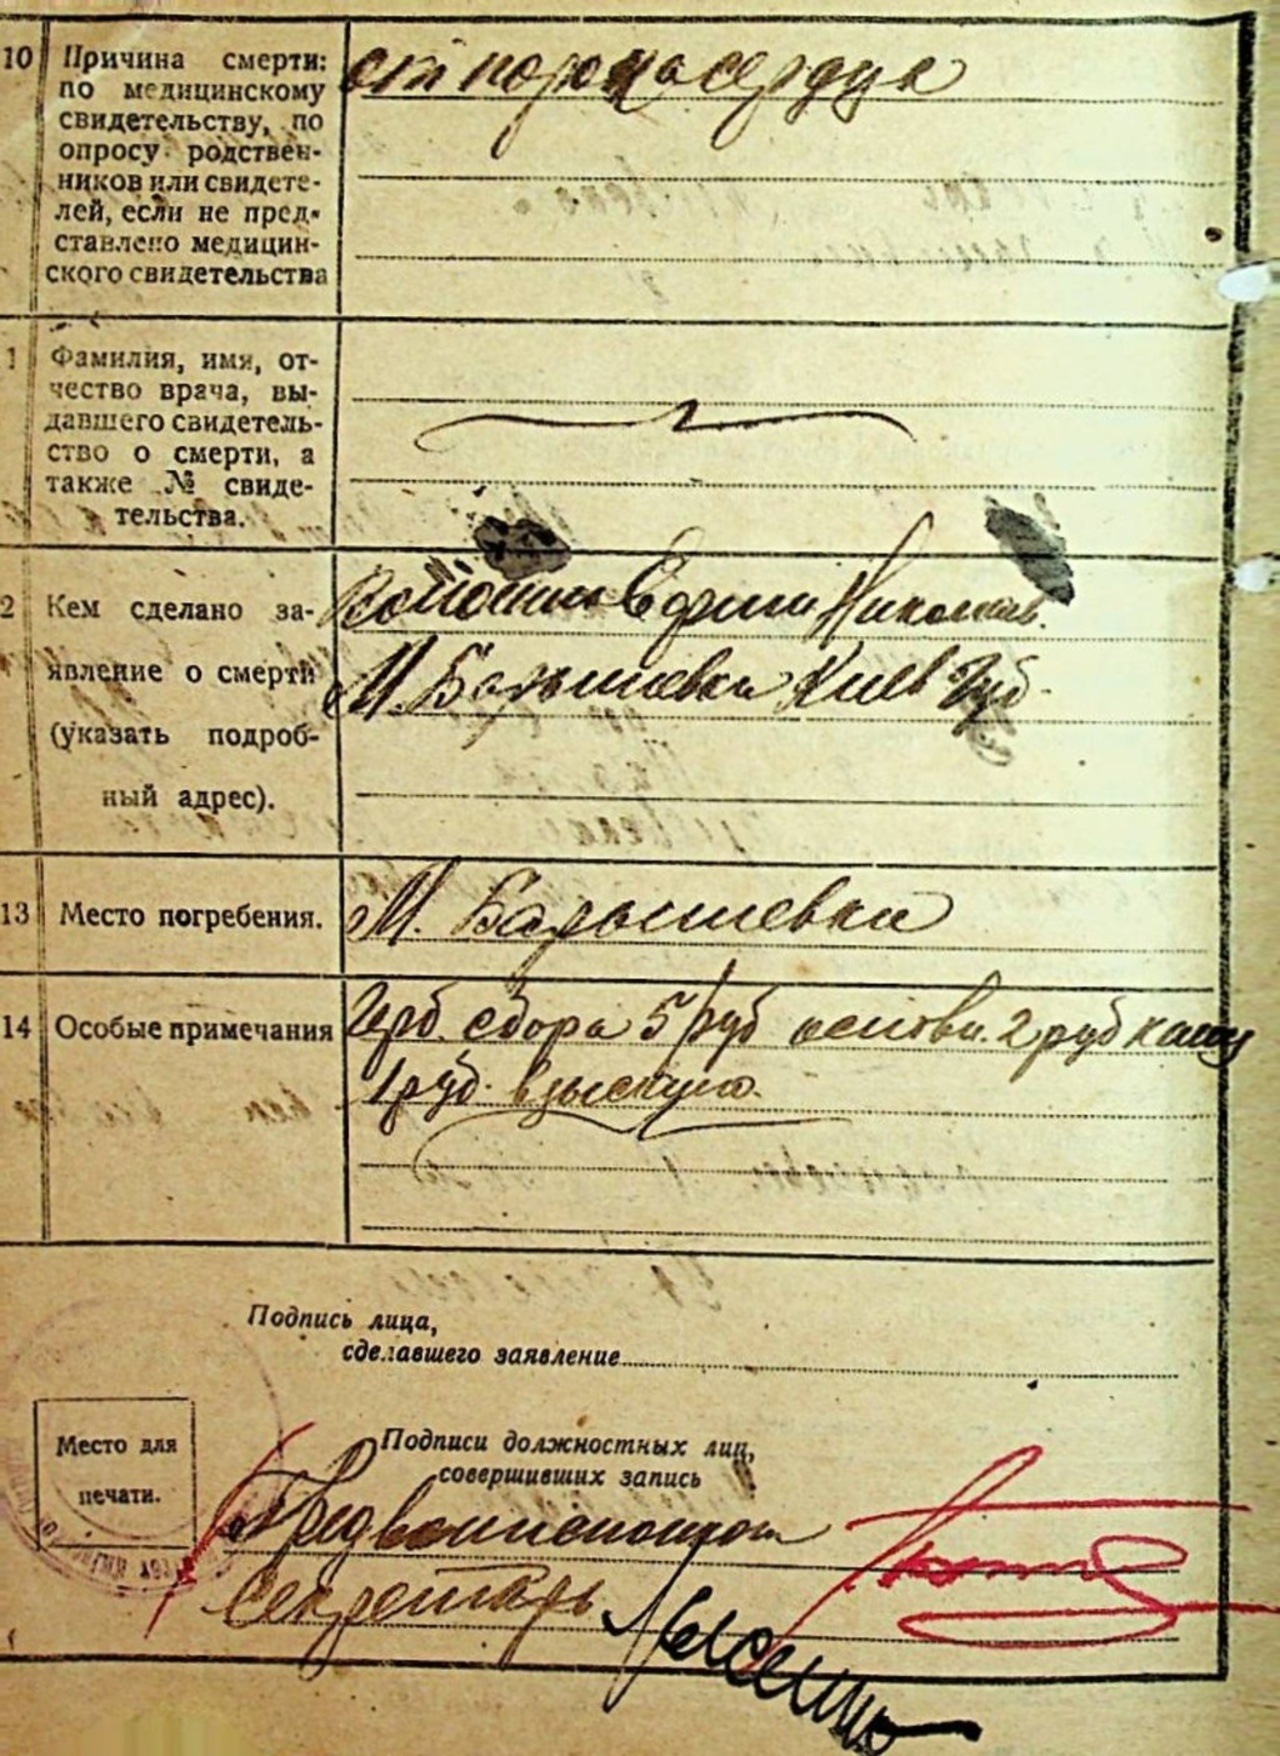 10 Причина смерти:
по медицинскому
свидетельству, по
опросу родствен-
ников или свидете-
лей, если не пред-
ставлено медицин-
ского свидетельства
от порока сердца
1 Фамилия, имя, от-
чество врача, вы-
давшего свидетель-
ство о смерти, а
также № свиде-
тельства.
2 Кем сделано за-
явление о смерти
(указать подроб-
ный адрес).
Николаев.
М. Барышевка Киев Губ.
13 Место погребения.
М. Барышевка
14 Особые примечания
Герб. сбора 5 руб основн. 2 руб канц
1 руб. взыскано.
Подпись лица,
сделавшего заявление
Место для
печати.
Подписи должностных лиц,
совершивших запись
Секретарь